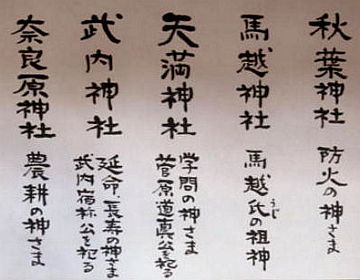 秋葉神社
防火の神さま
馬越神社
馬越氏の祖神
うじ
天満神社
学問の神さま
菅原道真公を祀る
武内神社
延命、長寿の神さま
武内宿祢公を祀る
奈良原神社
農耕の神さま